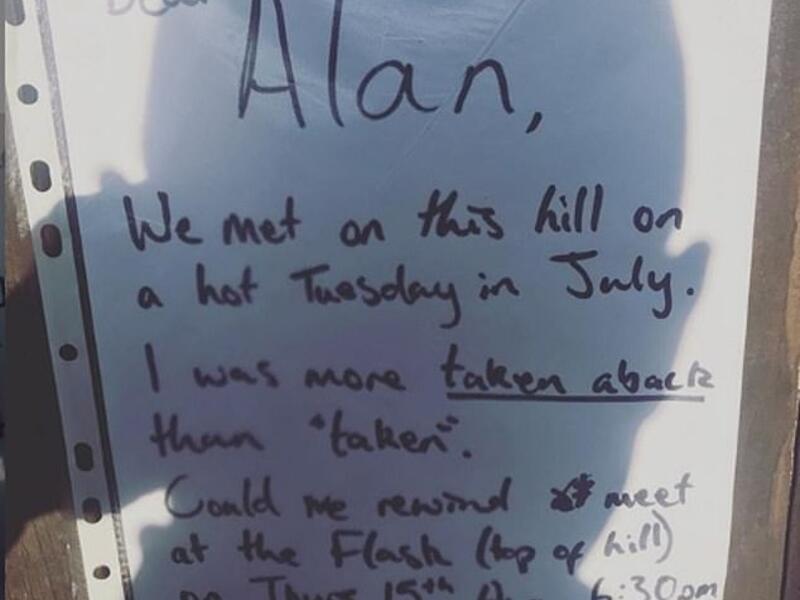 Dear
Alan,
We met on this hill on
a hot Tuesday in July.
I was more taken aback
than "taken".
Could we rewind & meet
at the Flask (top of hill)
on Thurs 15th Aug 6:30pm